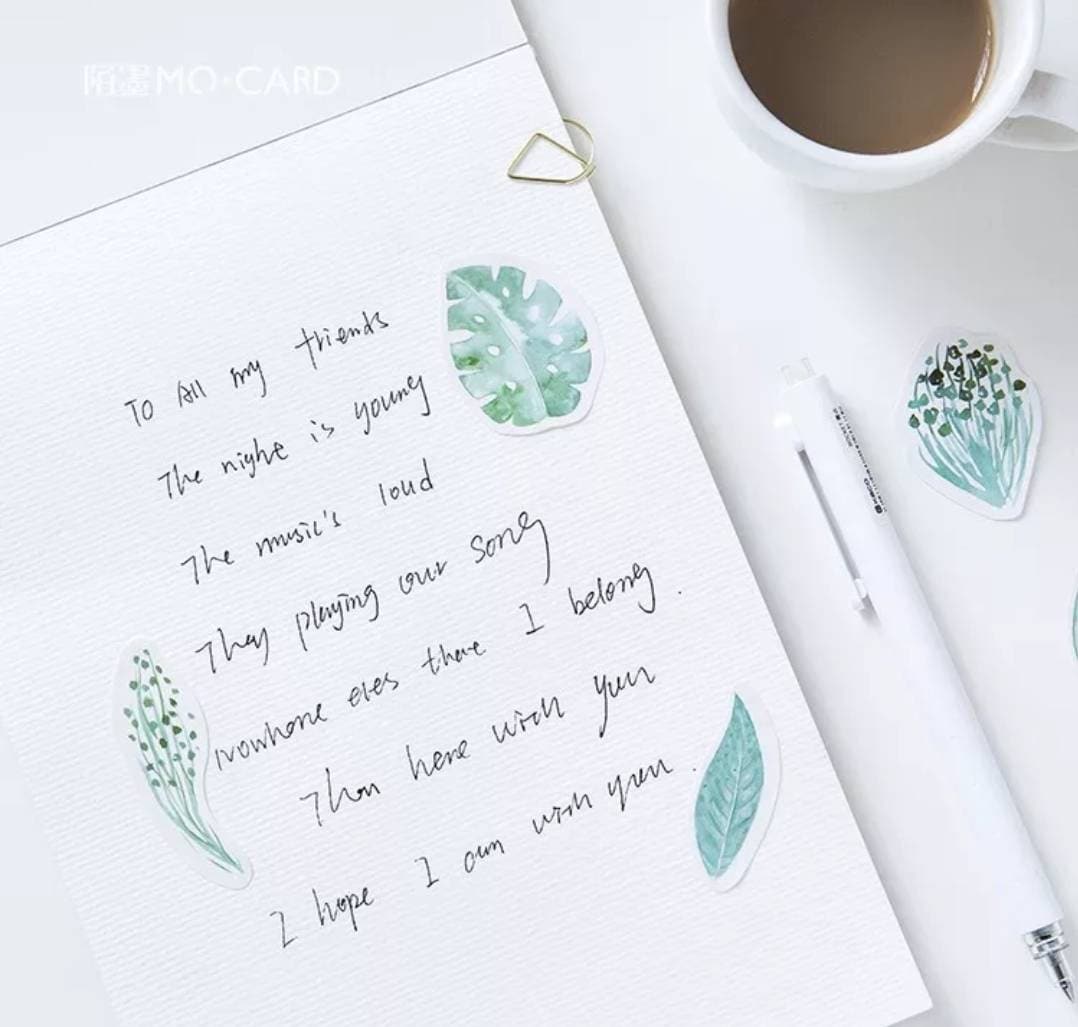 陌墨MO·CARD
TO All my friends
The night is young
The music's loud
They playing our song
Nowhere eles there I belong.
Than here with you
I hope I am with you.